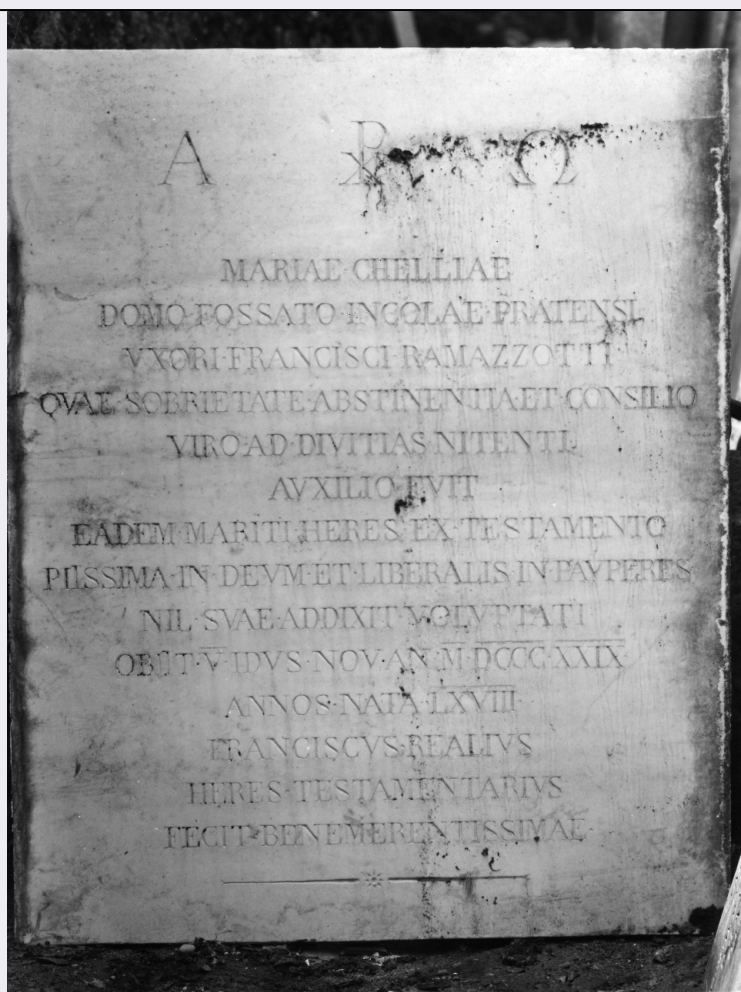 Α ☧ Ω
MARIAE·CHELLIAE
DOMO·FOSSATO·INCOLAE·PRATENSI
VXORI·FRANCISCI·RAMAZZOTTI
QVAE·SOBRIETATE·ABSTINENTIA·ET·CONSILIO
VIRO·AD·DIVITIAS·NITENTI
AVXILIO·FVIT
EADEM·MARITI·HERES·EX·TESTAMENTO
PIISSIMA·IN·DEVM·ET·LIBERALIS·IN·PAVPERES
NIL·SVAE·ADDIXIT·VOLVPTATI
OBIIT·V·IDVS·NOV·AN·M·DCCC·XXIX
ANNOS·NATA·LXVIII
FRANCISCVS·REALIVS
HERES·TESTAMENTARIVS
FECIT·BENEMERENTISSIMAE